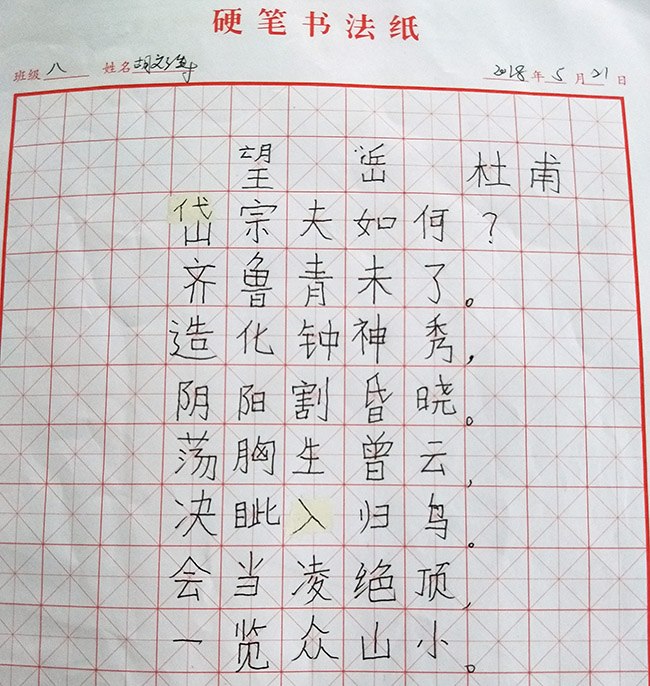 硬笔书法纸
班级 八 姓名 胡文 2018年5月21日
望岳 杜甫
岱宗夫如何？
齐鲁青未了。
造化钟神秀，
阴阳割昏晓。
荡胸生曾云，
决眦入归鸟。
会当凌绝顶，
一览众山小。